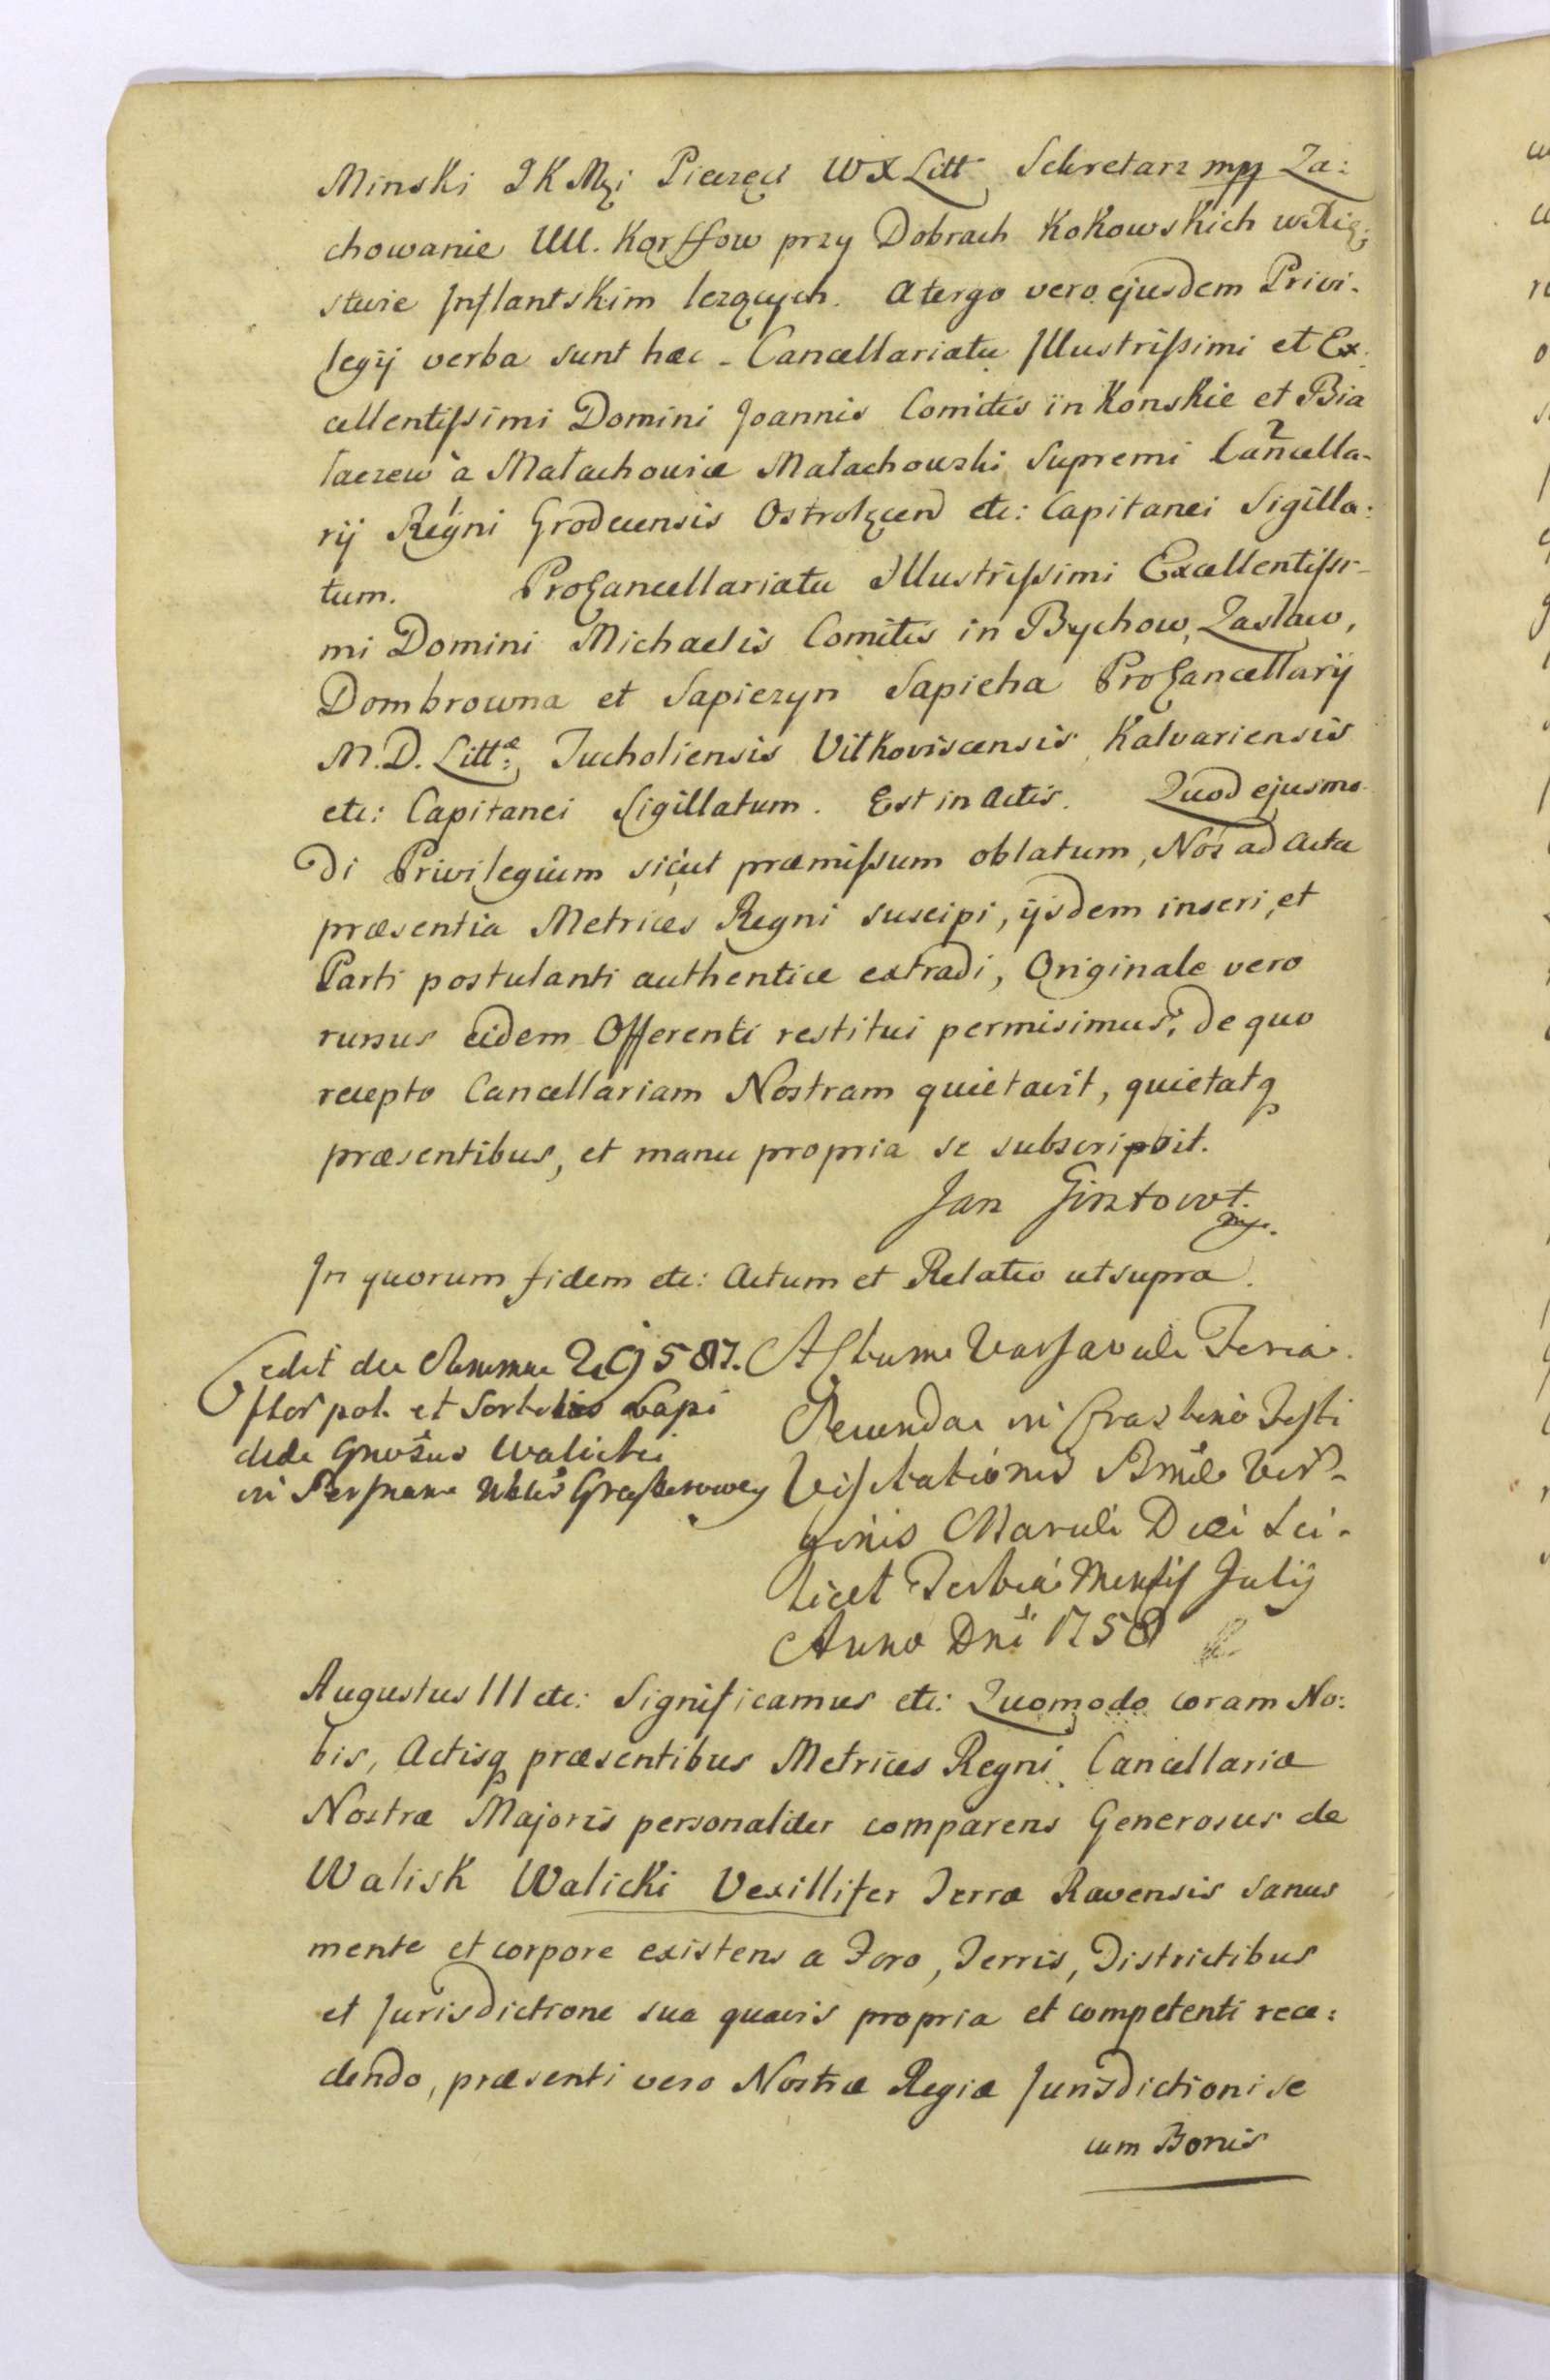 Minski JKMci Pieczęci WXLitt Sekretarz mpp Za:
chowanie UU. Korffow przy Dobrach Kokowskich w Xię:
stwie Inflantskim leżących. A tergo vero ejusdem Privi-
legij verba sunt hæc - Cancellariatu Illustrissimi et Ex-
cellentissimi Domini Joannis Comitis in Konskie et Bia
laczew à Małachowice Małachowski Supremi Cancella-
rij Regni Grodecensis Ostrołęcen etc: Capitanei Sigilla:
tum. ProCancellariatu Illustrissimi Excellentissi-
mi Domini Michaelis Comitis in Bychow, Zasław,
Dombrowna et Sapieżyn Sapieha ProCancellarij
M.D. Littæ: Tucholiensis Vilkoviscensis Kalvariensis
etc: Capitanei Sigillatum. Est in Actis. Quod ejusmo-
di Privilegium sicut præmissum oblatum, Nos ad Acta
præsentia Metrices Regni suscipi, ijsdem inseri, et
Parti postulanti authentice extradi, Originale vero
rursus eidem Offerenti restitui permisimus; de quo
recepto Cancellariam Nostram quietavit, quietatq
præsentibus, et manu propria se subscripsit.
Jan Gintowt.
mp.
In quorum fidem etc: Actum et Relatio ut supra.
Cedit de Summa 29587.
flor pol. et Sortibus
Gnosus Walicki
in
Actum Varsaviæ Feria
Secunda in Crastino Festi
Visitationis Bmæ Vir-
ginis Mariæ Die Sci-
licet Tertia Mensis Julij
Anno Dni 1758
Augustus III etc: Significamus etc: Quomodo coram No:
bis, Actisq præsentibus Metrices Regni Cancellariæ
Nostræ Majoris personaliter comparens Generosus de
Walisk Walicki Vexillifer Terræ Ravensis sanus
mente et corpore existens a Foro, Terris, Districtibus
et Jurisdictione sua quavis propria et competenti rece:
dendo, præsenti vero Nostræ Regiæ Jurisdictioni se
cum Bonis